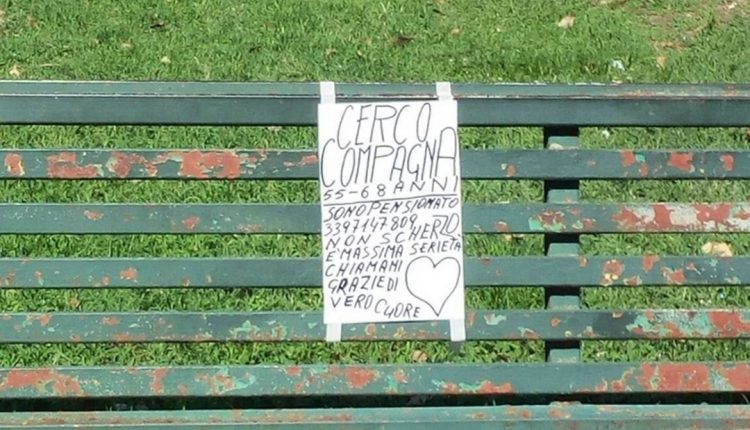 CERCO
COMPAGNA
55-68 ANNI
SONO PENSIONATO
3397147809
NON SCHERZO
E' MASSIMA SERIETA
CHIAMAMI
GRAZIE DI
VERO CUORE